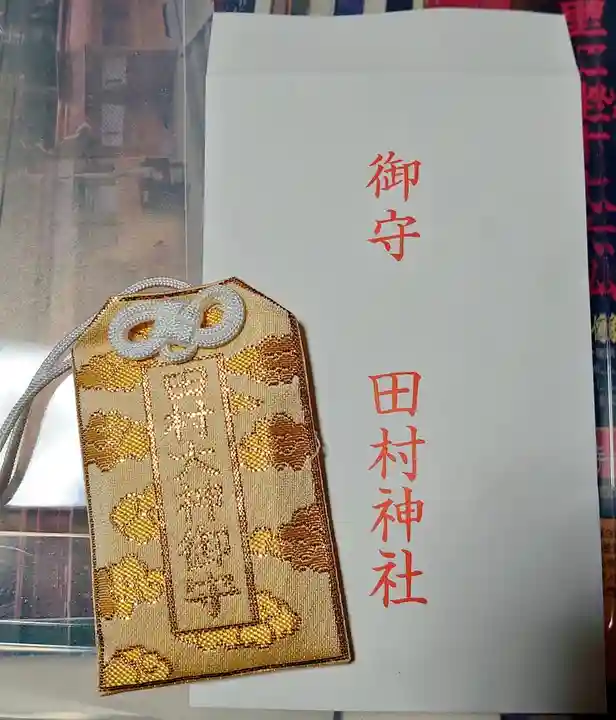 御守 田村神社
田村大神御守